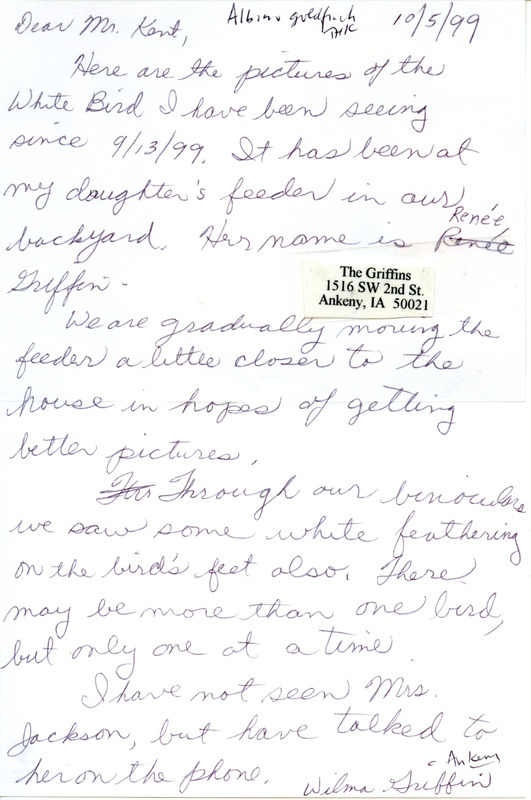 Dear Mr. Kent, Albino goldfinch 10/5/99
THK
Here are the pictures of the
White Bird I have been seeing
since 9/13/99. It has been at
my daughter's feeder in our
Renée
backyard. Her name is Renée
Griffin.
The Griffins
1516 SW 2nd St.
Ankeny, IA 50021
We are gradually moving the
feeder a little closer to the
house in hopes of getting
better pictures.
Through our binoculars
we saw some white feathering
on the bird's feet also. There
may be more than one bird,
but only one at a time
I have not seen Mrs.
Jackson, but have talked to
her on the phone. Wilma Griffin
- Ankeny